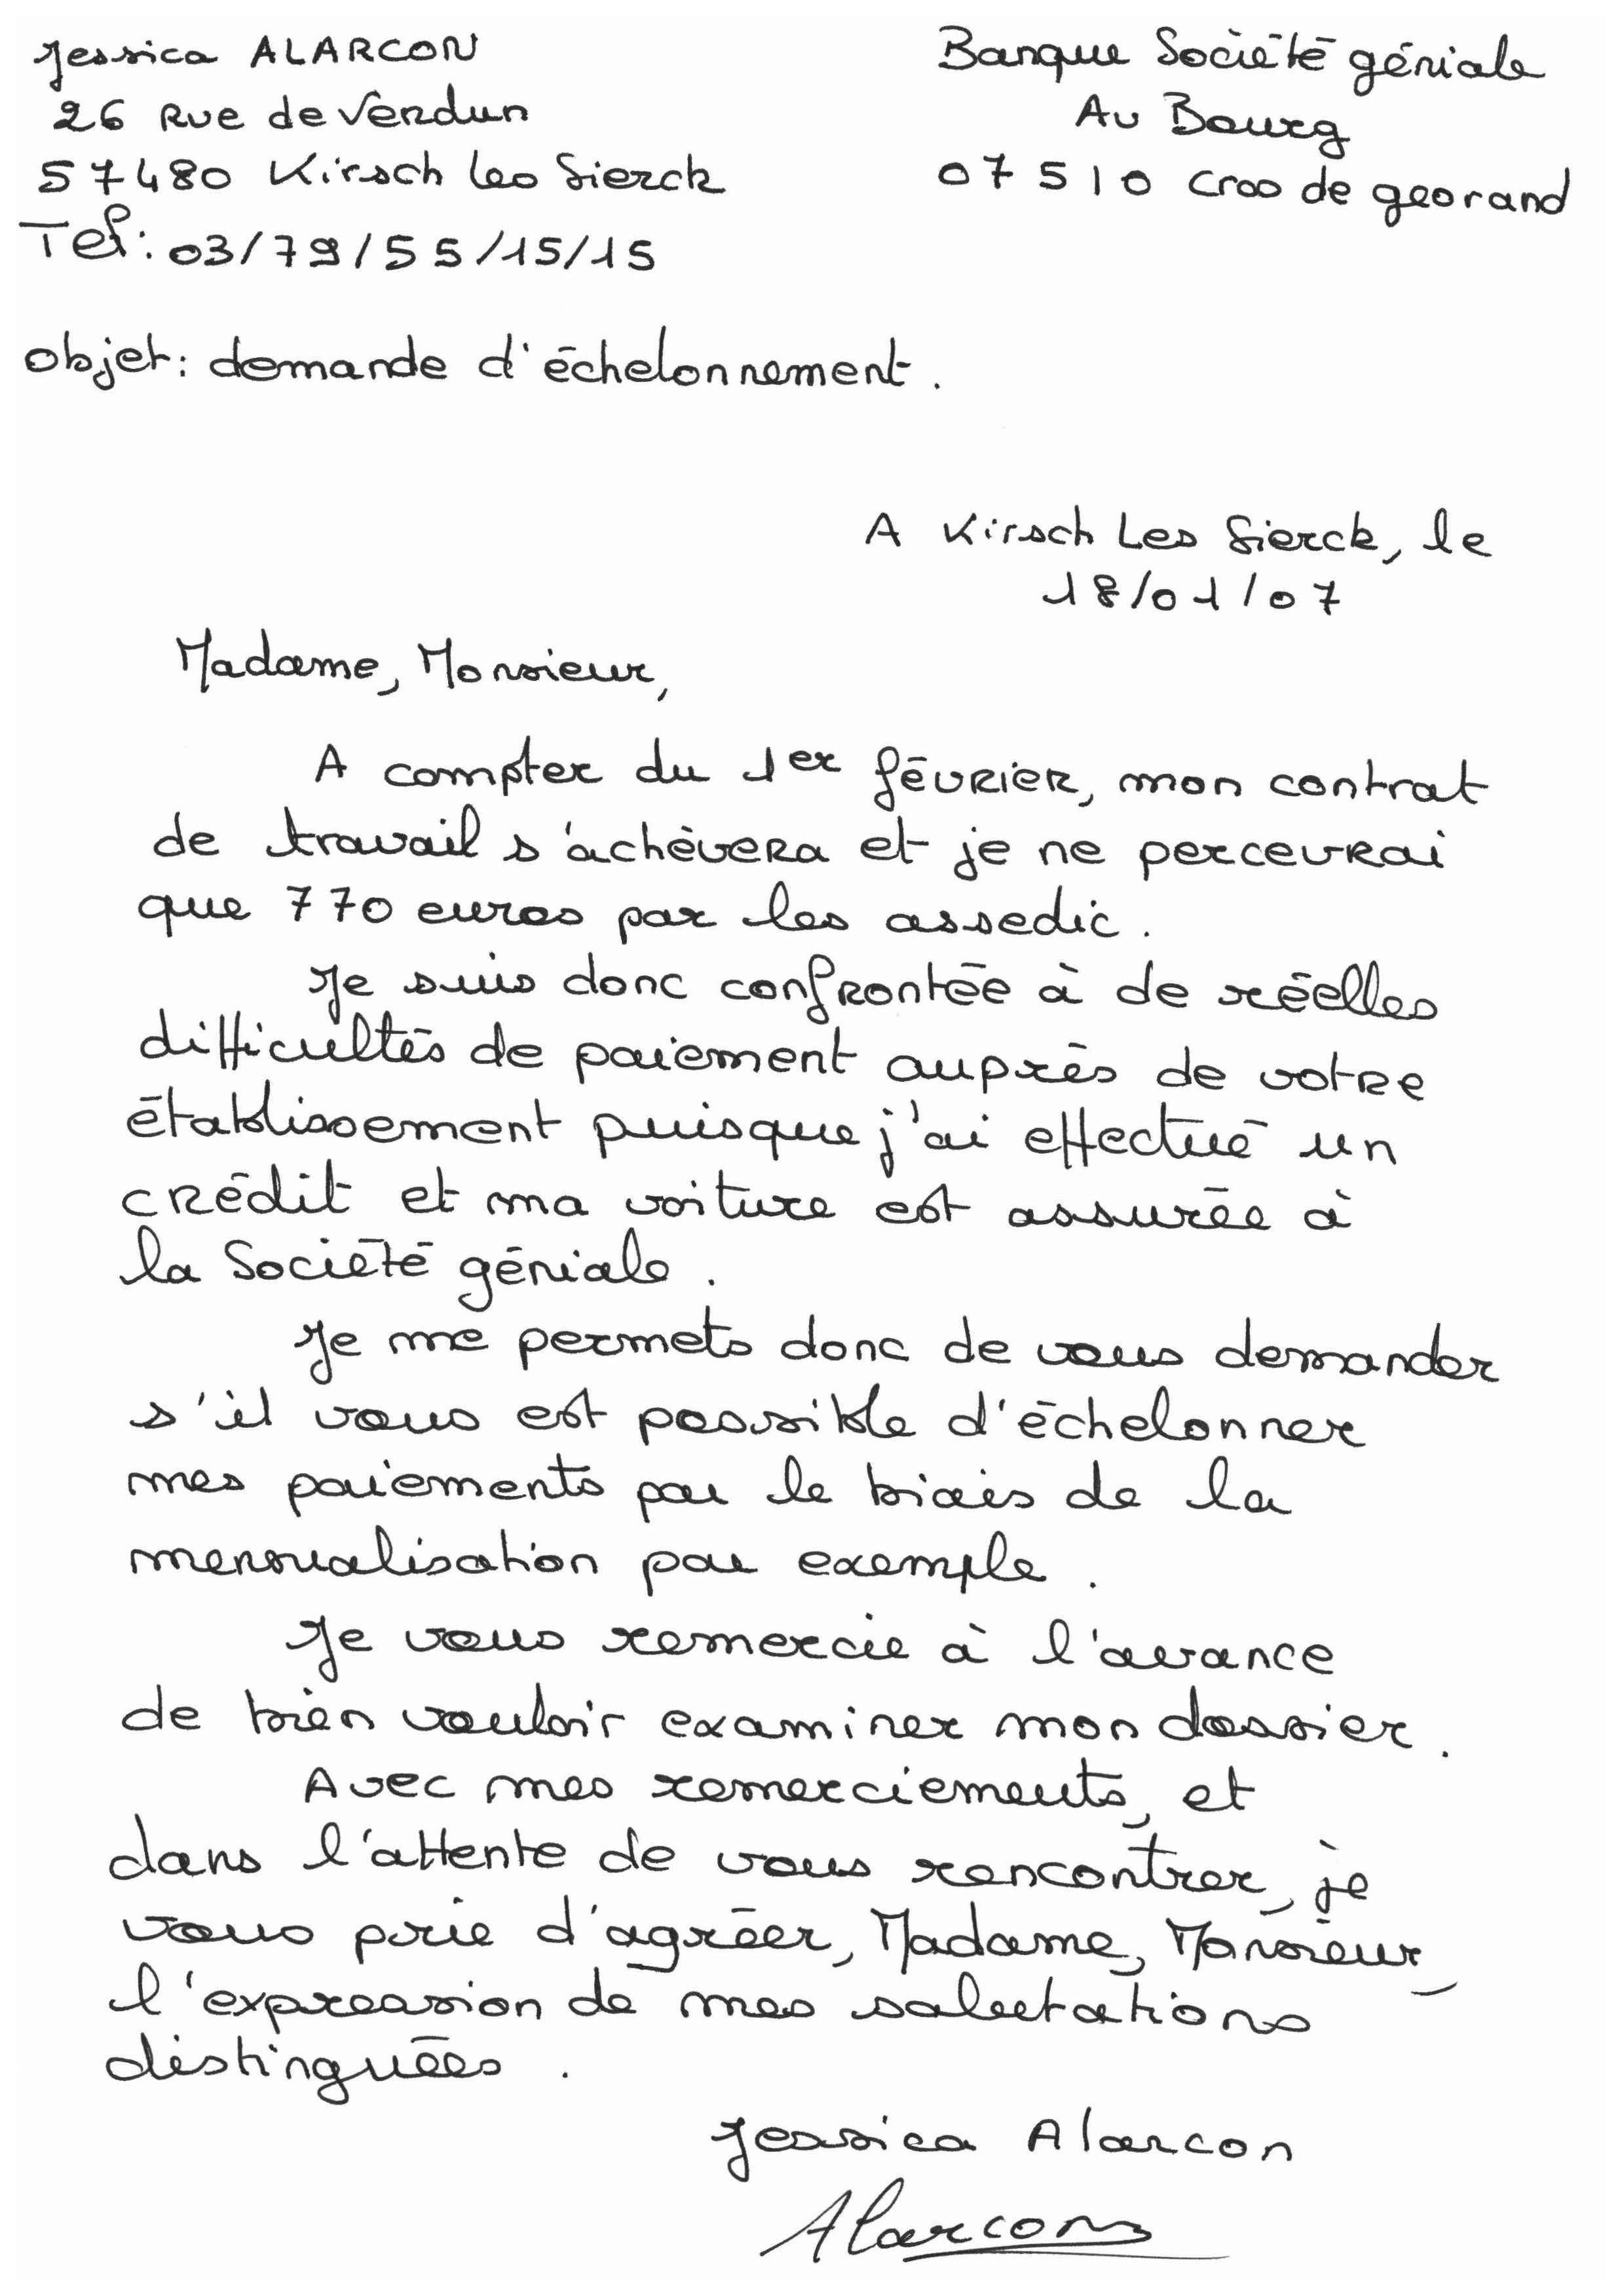 Jessica ALARCON
26 Rue de Verdun
57480 Kirsch les Sierck
Tel: 03/79/55/15/15
Banque Société géniale
Au Bourg
07510 cros de georand
objet: demande d'échelonnement.
A Kirsch Les Sierck, le
18/01/07
Madame, Monsieur,
A compter du 1er février, mon contrat
de travail s'achèvera et je ne percevrai
que 770 euros par les assedic.
Je suis donc confrontée à de réelles
difficultés de paiement auprès de votre
établissement puisque j'ai effectué un
crédit et ma voiture est assurée à
la Société géniale.
Je me permets donc de vous demander
s'il vous est possible d'échelonner
mes paiements par le biais de la
mensualisation par exemple.
Je vous remercie à l'avance
de bien vouloir examiner mon dossier.
Avec mes remerciements, et
dans l'attente de vous rencontrer, je
vous prie d'agréer, Madame, Monsieur,
l'expression de mes salutations
distinguées.
Jessica Alarcon
Alarcon